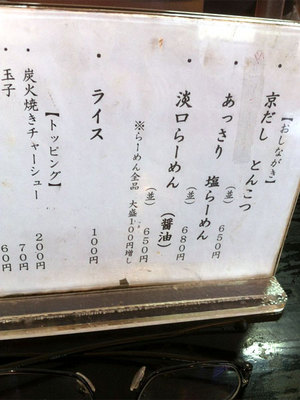 【おしながき】
・京だし とんこつ
(並) 650円
・あっさり 塩らーめん
(並) 680円
・淡口らーめん (醤油)
(並) 650円
※らーめん全品 大盛100円増し
・ライス 100円
【トッピング】
・炭火焼きチャーシュー 200円
・玉子 70円
60円